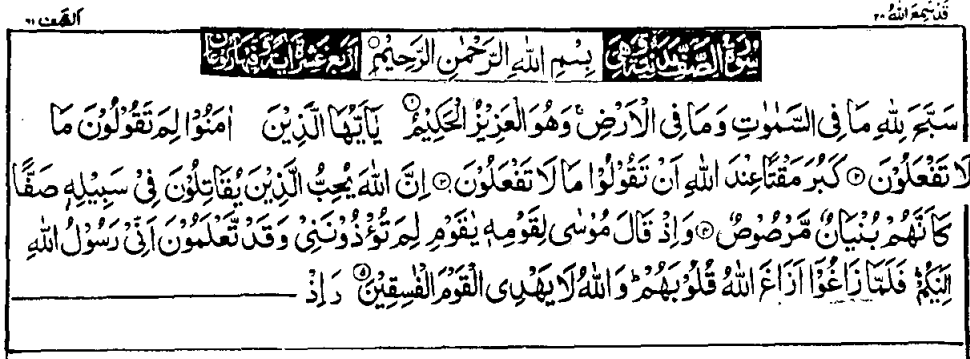 قَدْ سَمِعَ اللّٰهُ ٢٨ الصَّف ٦١
سُوْرَةُ الصَّفِّ مَدَنِيَّةٌ وَّهِيَ بِسْمِ اللّٰهِ الرَّحْمٰنِ الرَّحِيْمِ اَرْبَعَ عَشْرَةَ اٰيَةً وَّفِيْهَا رُكُوْعَانِ
سَبَّحَ لِلّٰهِ مَا فِى السَّمٰوٰتِ وَمَا فِى الْاَرْضِ ۚ وَهُوَ الْعَزِيْزُ الْحَكِيْمُ ١ يٰٓاَيُّهَا الَّذِيْنَ اٰمَنُوْا لِمَ تَقُوْلُوْنَ مَا
لَا تَفْعَلُوْنَ ٢ كَبُرَ مَقْتًا عِنْدَ اللّٰهِ اَنْ تَقُوْلُوْا مَا لَا تَفْعَلُوْنَ ٣ اِنَّ اللّٰهَ يُحِبُّ الَّذِيْنَ يُقَاتِلُوْنَ فِىْ سَبِيْلِهٖ صَفًّا
كَاَنَّهُمْ بُنْيَانٌ مَّرْصُوْصٌ ٤ وَاِذْ قَالَ مُوْسٰى لِقَوْمِهٖ يٰقَوْمِ لِمَ تُؤْذُوْنَنِىْ وَقَدْ تَّعْلَمُوْنَ اَنِّىْ رَسُوْلُ اللّٰهِ
اِلَيْكُمْ ؕ فَلَمَّا زَاغُوْٓا اَزَاغَ اللّٰهُ قُلُوْبَهُمْ ؕ وَاللّٰهُ لَا يَهْدِى الْقَوْمَ الْفٰسِقِيْنَ ٥ وَاِذْ